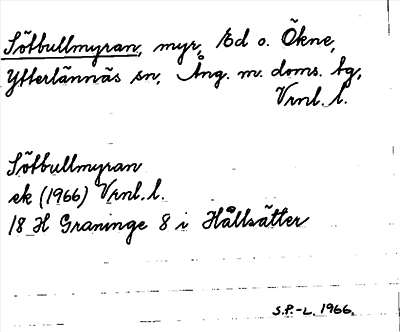 Sötbullmyran, myr, Ed o. Ökne,
Ytterlännäs sn, Ång. m. doms. tg,
Vrnl. l.
Sötbullmyran
ek (1966) Vrnl. l.
18 H Graninge 8 i Hållsätter
S.P.-L. 1966.